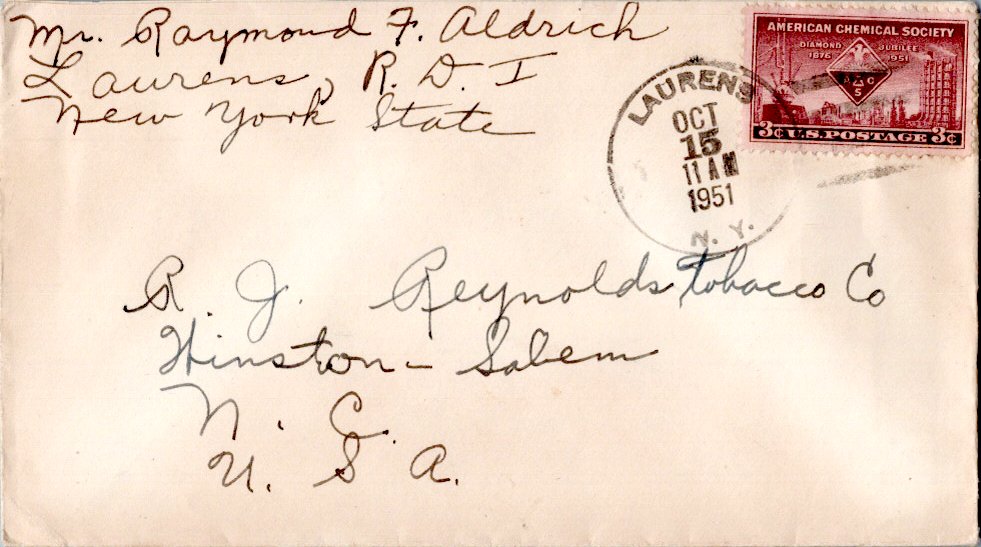 Mr. Raymond F. Aldrich
Laurens, R. D. I
New York State
AMERICAN CHEMICAL SOCIETY
DIAMOND JUBILEE
1876 1951
A C
S
3¢ U.S. POSTAGE 3¢
LAURENS
OCT
15
11 AM
1951
N. Y.
R. J. Reynolds tobacco Co
Winston - Salem
N. C.
U. S. A.